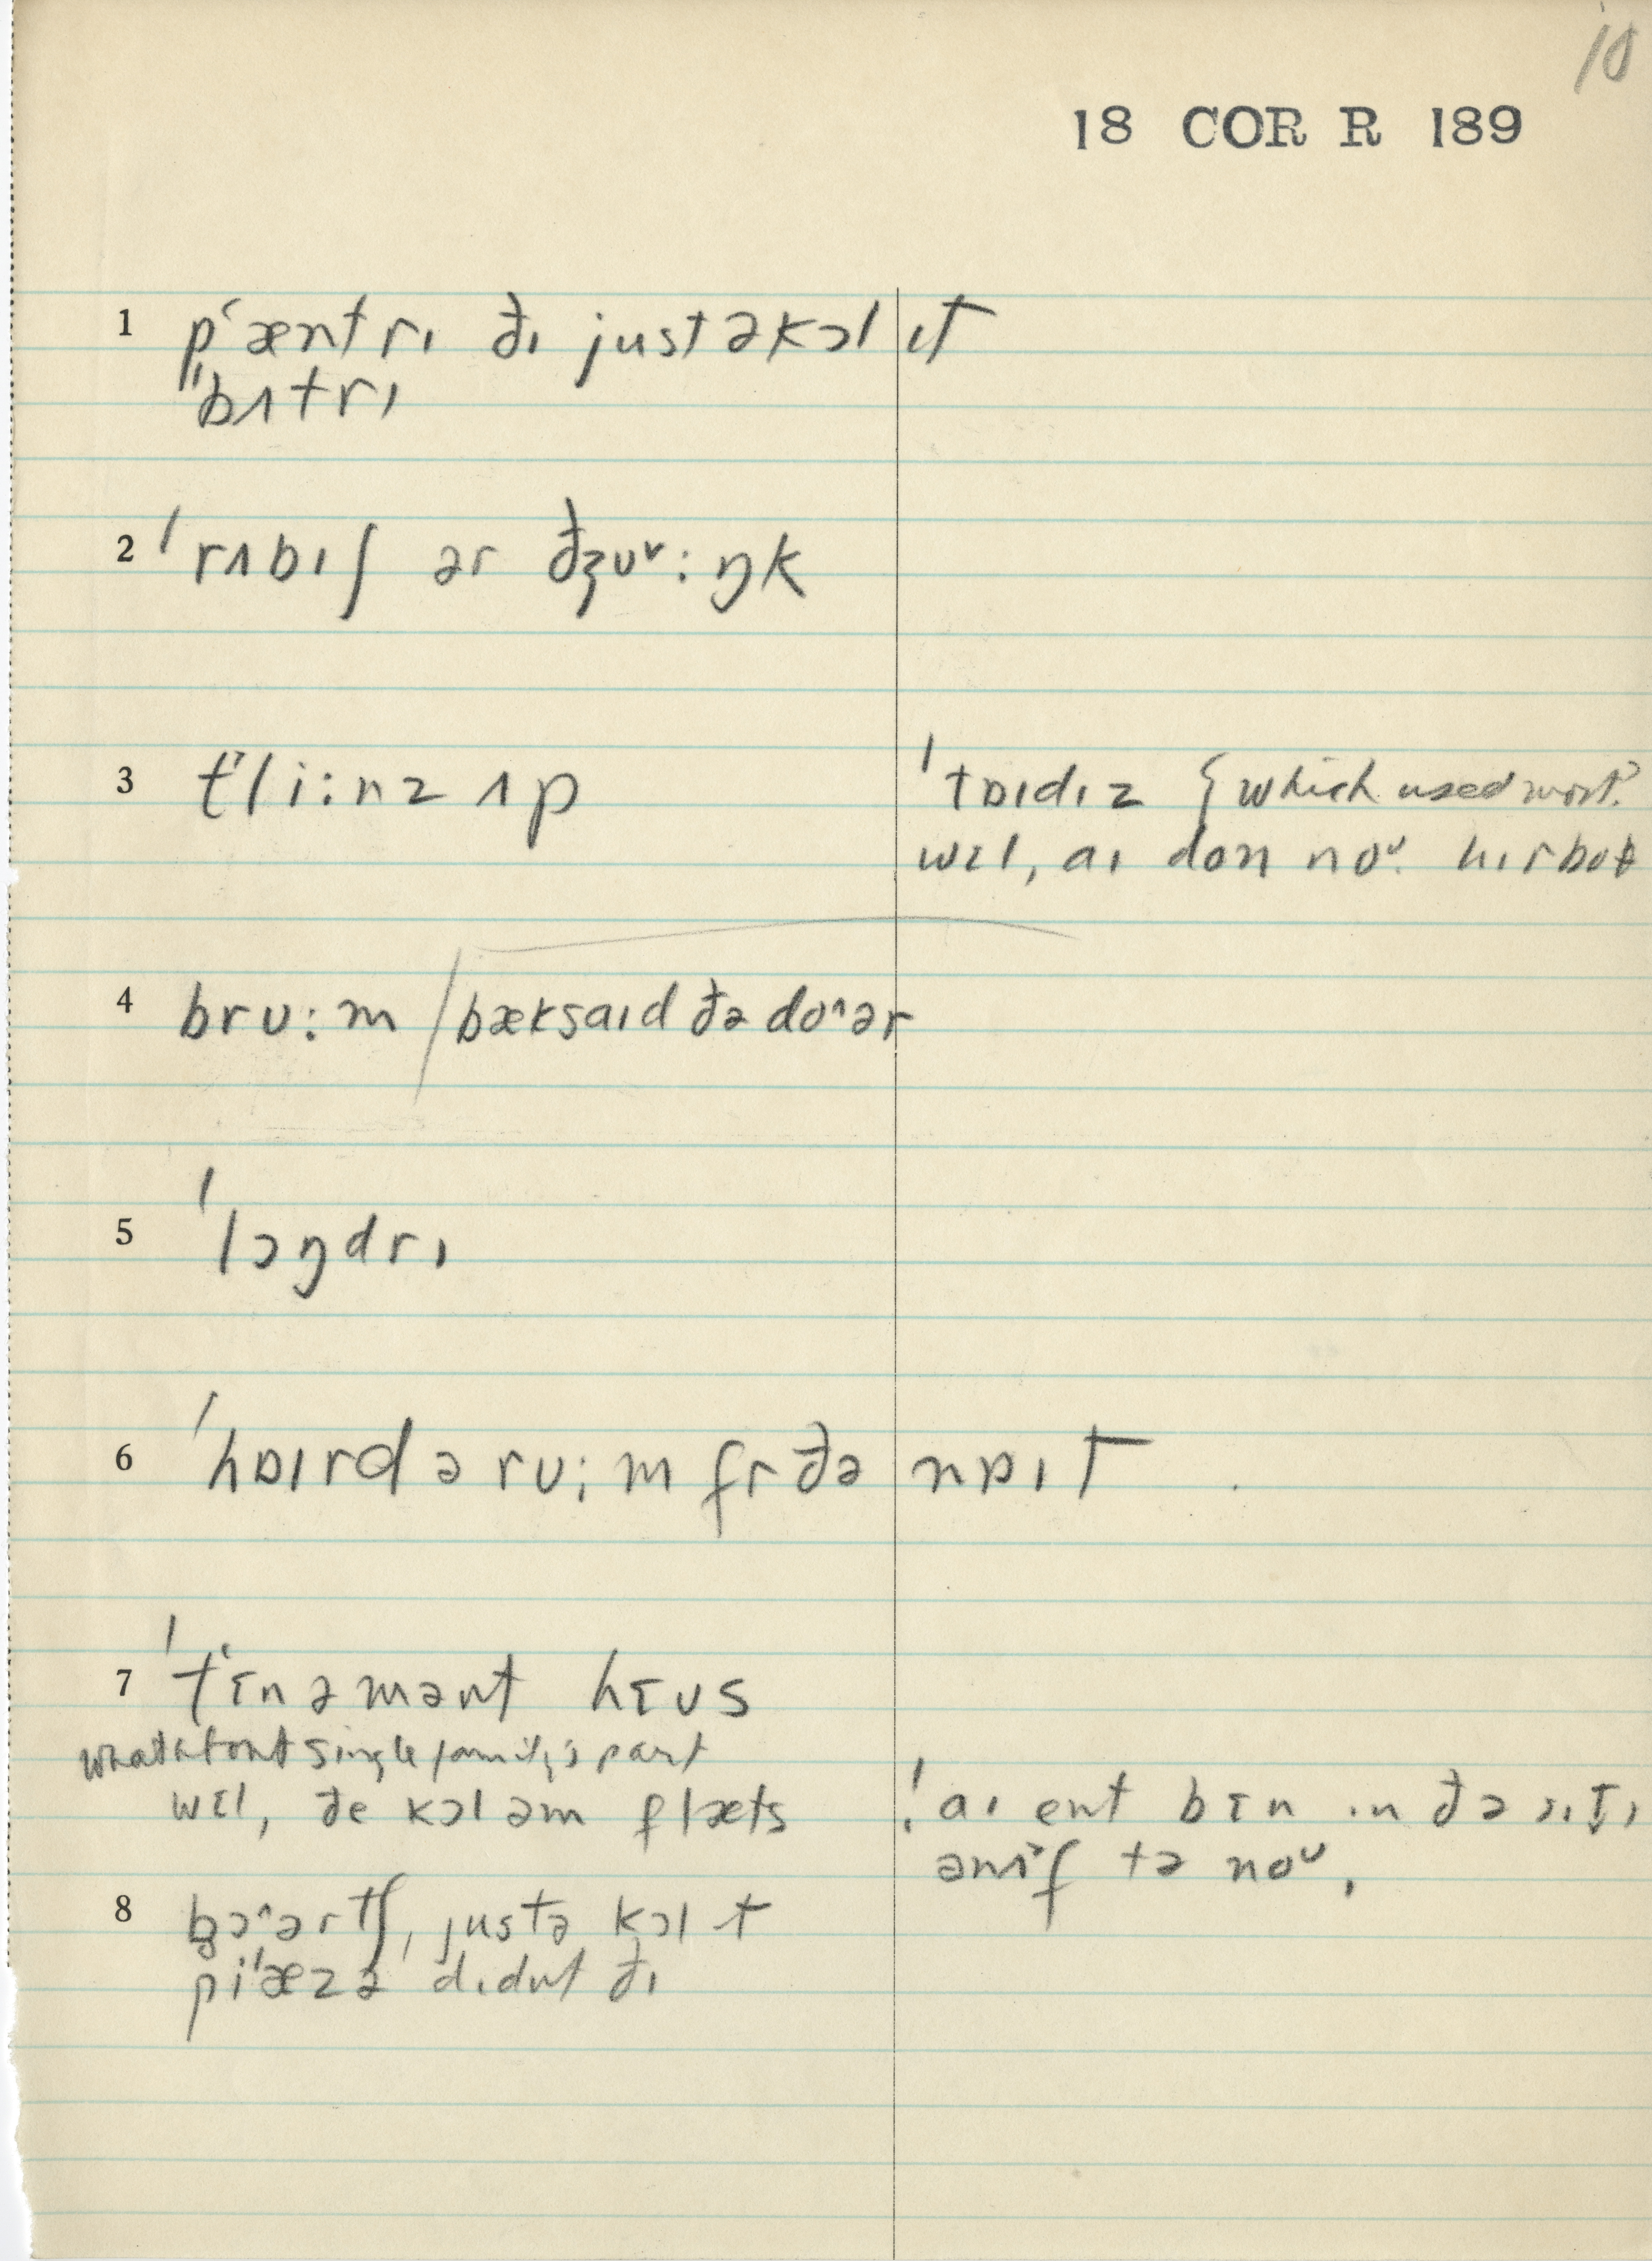 10
18 COR R 189
1 pʻæntrɪ ðɪ justəkɔl ɪt
ˈbʌtrɪ
2 ˈrʌbɪʃ ər dʒuᵛ:ŋk
3 tʻli:nz ʌp
ˈtɒɪdɪz { which used most?
wɛl, aɪ don noᵘ. hɪr boθ
4 bru:m / bæksaɪd ðə do^ər
5 ˈlɔŋdrɪ
6 ˈhɒɪrd ə ru:m fr ðə nɒɪt
7 ˈtʻɛnəmənt hɛus
single family's part
wɛl, ðe kɔl əm flæts
! aɪ ent bɛn ɪn ðə sɪtɪ
ənʌf tə noᵘ.
8 b̥ɔ^ərtʃ, justə kɔl ɪt
piˈæzə didnt ðɪ